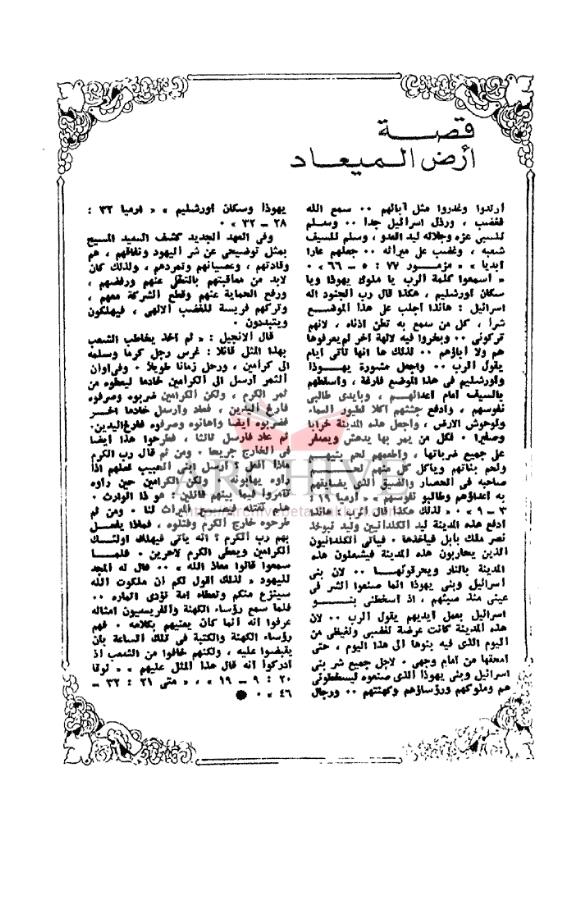 قصــة
أرض الميعــاد
ارتدوا وغدروا مثل آبائهم ٠٠ سمع الله
فغضب ، ورذل اسرائيل جدا ٠٠ وسلم
للسبى عزه وجلاله ليد العدو ، وسلم للسيف
شعبه ، وغضب على ميراثه ٠٠ جعلهم عارا
أبديا » « مزمور ٧٧ : ٥ – ٦٦ » ٠
« اسمعوا كلمة الرب يا ملوك يهوذا ويا
سكان أورشليم ، هكذا قال رب الجنود اله
اسرائيل : هانذا أجلب على هذا الموضع
شرا ، كل من سمع به تطن أذناه ، لانهم
تركونى ٠٠ وبخروا فيه لالهة أخر لم يعرفوها
هم ولا آباؤهم ٠٠ لذلك ها انها تأتى أيام
يقول الرب ٠٠ واجعل مشورة يهــوذا
وأورشليم فى هذا الموضع فارغة ، واسقطهم
بالسيف أمام أعدائهــم ، وبأيدى طالبى
نفوسهم ، وأدفع جثثهم أكلا لطيور السماء
ولوحوش الارض ، واجعل هذه المدينة خرابا
وصفيرا ٠ فكل من يمر بها يدهش ويصفر
على جميع ضرباتها ، واطعمهم لحم بنيهــم
ولحم بناتهم ويأكل كل منهم لحــم
صاحبه فى الحصار والضيق الذى يضايقهم
به أعداؤهم وطالبو نفوسهم » « أرميا ١٩ :
٣ – ٩ » ٠ « لذلك هكذا قال الرب : هانذا
أدفع هذه المدينة ليد الكلدانيين وليد نبوخذ
نصر ملك بابل فيأخذها ٠ فيأتى الكلدانيون
الذين يحاربون هذه المدينة فيشعلون هذه
المدينة بالنار ويحرقونهــا ٠٠ لان بنى
اسرائيل وبنى يهوذا انما صنعوا الشر فى
عينى منذ صبئهم ، اذ أسخطنى بنــو
اسرائيل بعمل أيديهم يقول الرب ٠٠ لان
هذه المدينة كانت عرضة لغضبى ولغيظى من
اليوم الذى فيه بنوها الى هذا اليوم ، حتى
أمحقها من أمام وجهى ٠ لاجل جميع شر بنى
اسرائيل وبنى يهوذا الذى صنعوه ليسخطونى
هم وملوكهم ورؤساؤهم وكهنتهم ٠٠ ورجال
يهوذا وسكان أورشليم » « ارميا ٣٢ :
٢٨ – ٣٢ » ٠
وفى العهد الجديد كشف السيد المسيح
بمثل توضيحى عن شر اليهود ونفاقهم ، هم
وقادتهم ، وعصيانهم وتمردهم ، ولذلك كان
لابد من معاقبتهم بالتخلى عنهم ورفضهم ،
ورفع الحماية عنهم وقطع الشركة معهم ،
وتركهم فريسة للغضب الالهى ، فيهلكون
ويتبددون ٠
قال الانجيل : « ثم أخذ يخاطب الشعب
بهذا المثل قائلا : غرس رجل كرما وسلمه
الى كرامين ، ورحل زمانا طويلا ٠ وفى أوان
الثمر أرسل الى الكرامين خادما ليعطوه من
ثمر الكرم ، ولكن الكرامين ضربوه وصرفوه
فارغ اليدين ، فعاد وأرسل خادما آخــر
فضربوه أيضا وأهانوه وصرفوه فارغ اليدين٠
ثم عاد فأرسل ثالثا ، فطرحوا هذا أيضا
فى الخارج جريحا ٠ ومن ثم قال رب الكرم
ماذا أفعل ؟ أرسل ابنى الحبيب فعلهم اذا
رأوه يهابونه ٠ ولكن الكرامين حين رأوه
تآمروا فيما بينهم قائلين : هو ذا الوارث ٠
هلم نقتله فيصــير الميراث لنا ٠ ومن ثم
طرحوه خارج الكرم وقتلوه ٠ فماذا يفعــل
بهم رب الكرم ؟ انه يأتى فيهلك أولئــك
الكرامين ويعطى الكرم لآخرين ٠ فلمــا
سمعوا قالوا معاذ الله » ٠٠ قال له المجد
لليهود « لذلك أقول لكم أن ملكوت الله
سينتزع منكم وتعطاه أمة تؤدى أثماره ٠٠
فلما سمع رؤساء الكهنة والفريسيون أمثاله
عرفوا أنه انما كان يعنيهم بكلامه ٠ فهم
رؤساء الكهنة والكتبة فى تلك الساعة بأن
يقبضوا عليه ، ولكنهم خافوا من الشعب اذ
أدركوا أنه قال هذا المثل عليهم » « لوقا
٢٠ : ٩ – ١٩ » ، « متى ٢١ : ٣٣ –
٤٦ » ٠ ●
ARCHIVE